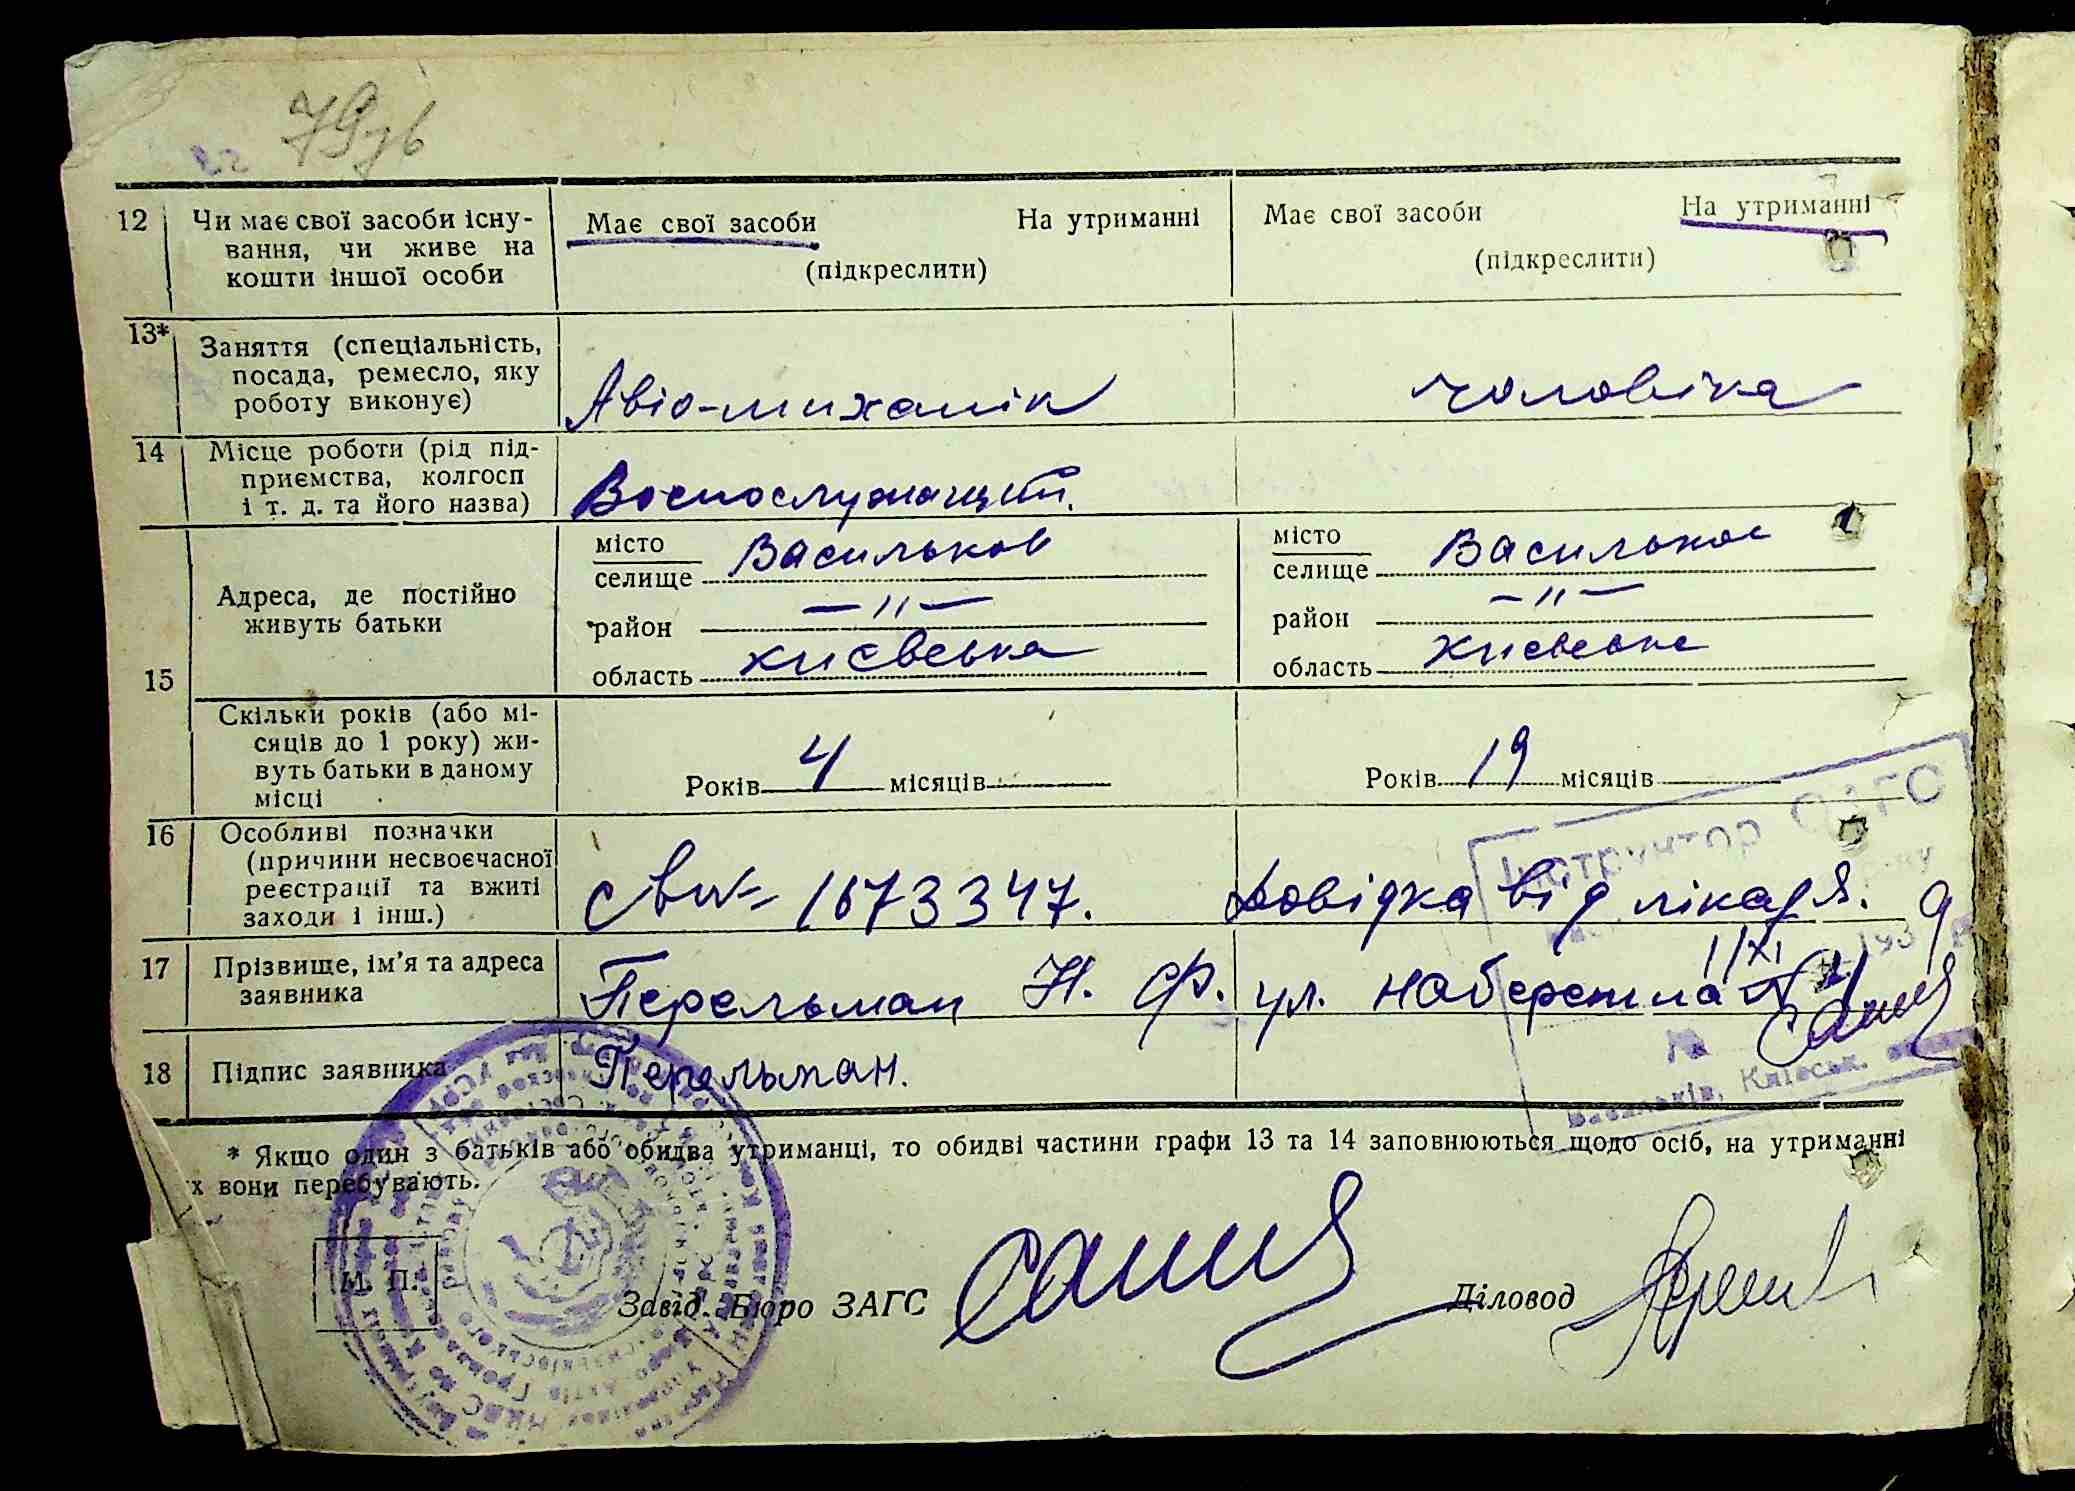 79зв
12 Чи має свої засоби існу-
вання, чи живе на
кошти іншої особи
Має свої засоби На утриманні
(підкреслити)
Має свої засоби На утриманні
(підкреслити)
13* Заняття (спеціальність,
посада, ремесло, яку
роботу виконує)
Авіо-миханік
чоловіка
14 Місце роботи (рід під-
приємства, колгосп
і т. д. та його назва)
Воєнослужащий.
15 Адреса, де постійно
живуть батьки
місто
селище Васильков
район —〃—
область Києвська
місто
селище Васильков
район —〃—
область Києвська
Скільки років (або мі-
сяців до 1 року) жи-
вуть батьки в даному
місці
Років 4 місяців
Років 19 місяців
16 Особливі позначки
(причини несвоєчасної
реєстрації та вжиті
заходи і інш.)
1673347. Довідка від лікаря.
Інструктор ОАГС
17 Прізвище, ім'я та адреса
заявника
Перельман Н. Ф. ул. Набережна
11/XI
18 Підпис заявника
Перельман.
Васильків, Київськ.
* Якщо один з батьків або обидва утриманці, то обидві частини графи 13 та 14 заповнюються щодо осіб, на утриманні
х вони перебувають.
М. П.
Завід. Бюро ЗАГС
Діловод